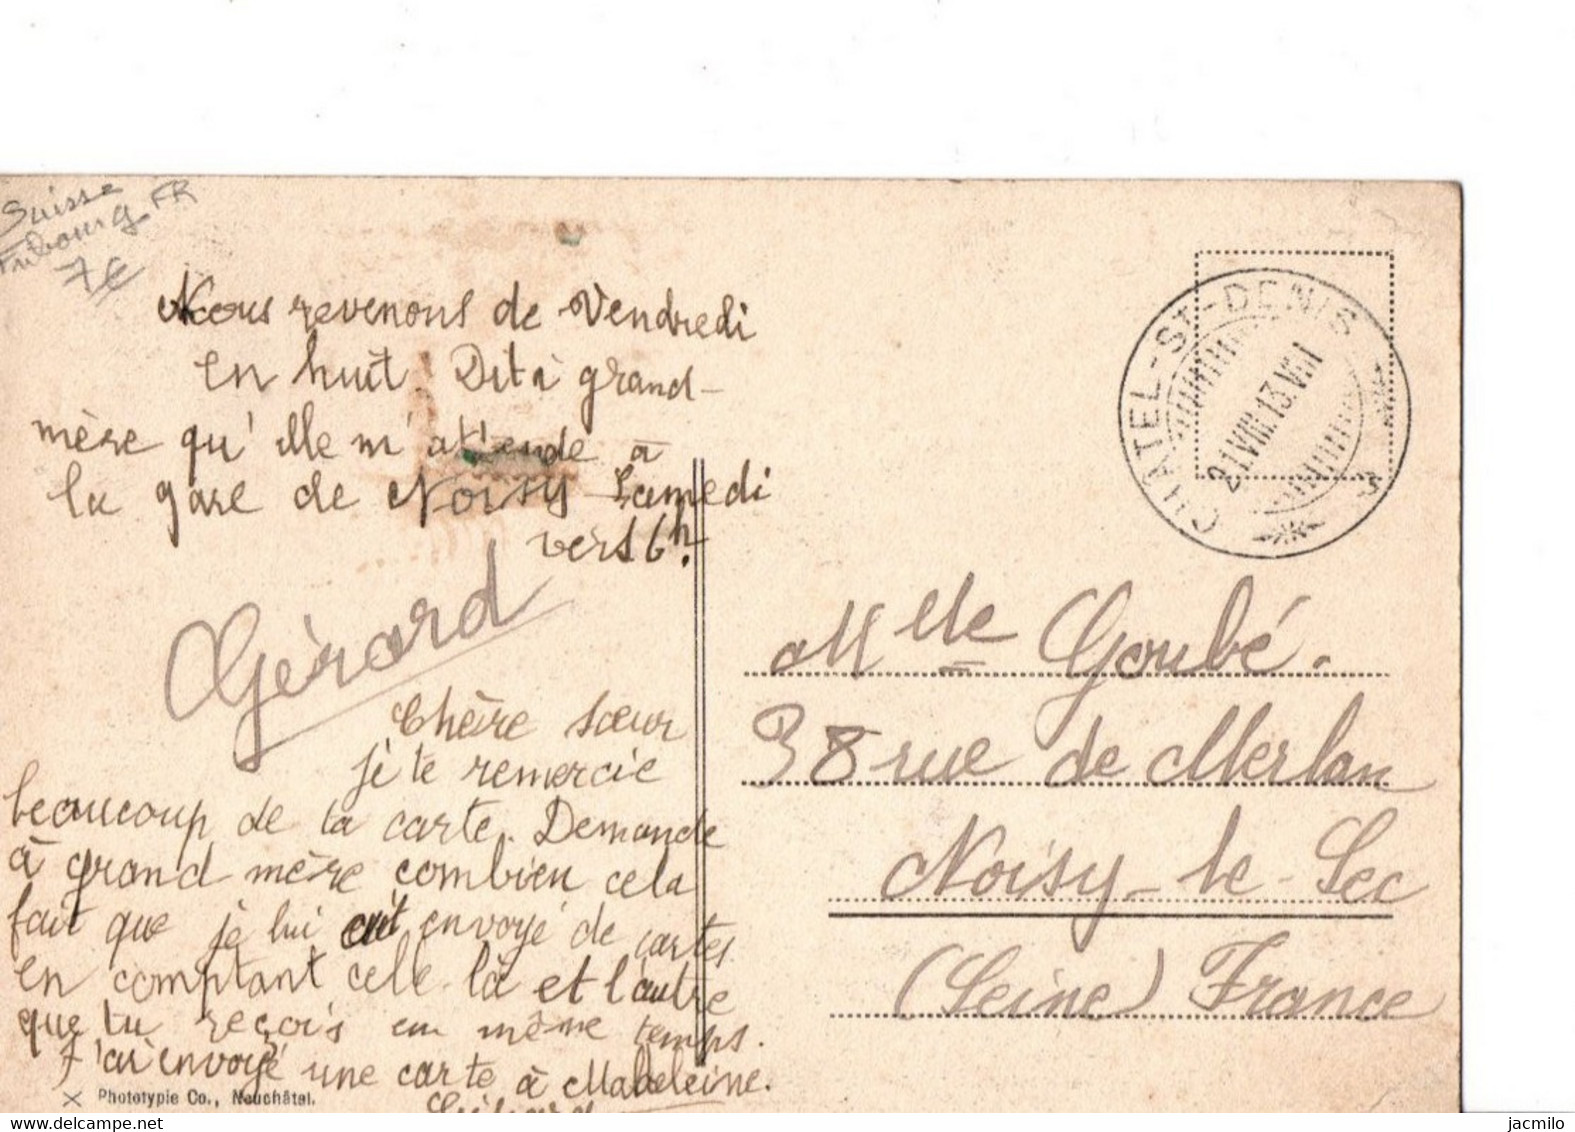 Suisse FR
Fribourg
7€
Nous revenons de Vendredi
en huit. Dit à grand-
mère qu'elle m'attende à
la gare de Noisy Samedi
vers 6h.
Gérard
Chère sœur
je te remercie
beaucoup de ta carte. Demande
à grand mère combien cela
fait que je lui ait envoyé de cartes
en comptant celle là et l'autre
que tu reçois en même temps.
J'ai envoyé une carte à Madeleine.
Phototypie Co., Neuchâtel.
CHATEL-ST-DENIS
21.VIII.13.VII
3
Mlle Goubé.
38 rue de Merlan
Noisy-le-Sec
(Seine) France
jacmilo